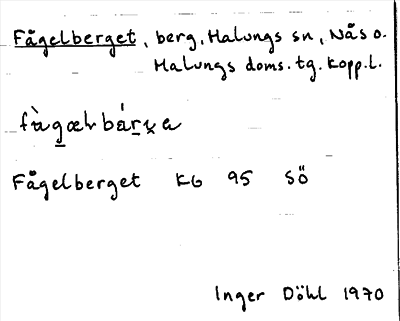 Fågelberget, berg, Malungs sn, Nås o.
Malungs doms. tg. Kopp. l.
fùgæl bárɣa
Fågelberget KG 95 SÖ
Inger Döhl 1970